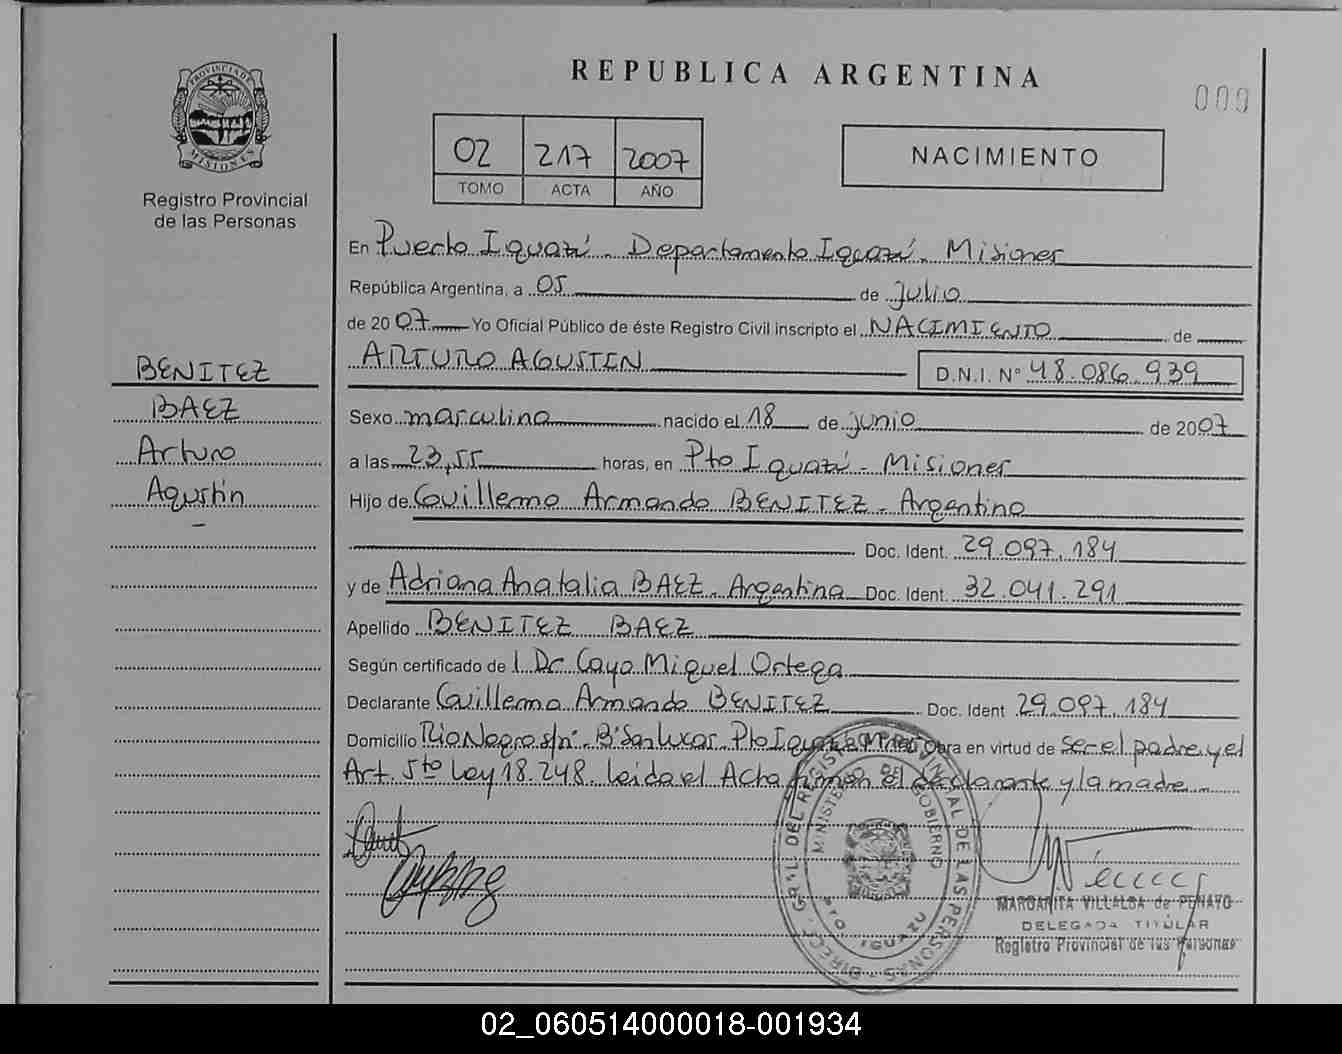 REPUBLICA ARGENTINA
000
PROVINCIA DE
MISIONES
Registro Provincial
de las Personas
02 217 2007
TOMO ACTA AÑO
NACIMIENTO
En Puerto Iguazú - Departamento Iguazú - Misiones
República Argentina, a 05 de julio
de 2007 Yo Oficial Público de éste Registro Civil inscripto el NACIMIENTO de
ARTURO AGUSTIN D.N.I. N° 48.086.939
BENITEZ
BAEZ
Arturo
Agustín
Sexo masculino nacido el 18 de junio de 2007
a las 23,55 horas, en Pto Iguazú - Misiones
Hijo de Guillermo Armando BENITEZ - Argentino
Doc. Ident. 29.097.184
y de Adriana Anatalia BAEZ - Argentina Doc. Ident. 32.041.291
Apellido BENITEZ BAEZ
Según certificado de l Dr Cayo Miguel Ortega
Declarante Guillermo Armando BENITEZ Doc. Ident 29.097.184
Domicilio Rio Negro s/n° - B° San Lucas - Pto Iguazú Obra en virtud de ser el padre y el
Art. 5to Ley 18.248. Leida el Acta firman el declarante y la madre -
DIRECC. GRAL. DEL REGISTRO PROVINCIAL DE LAS PERSONAS
MINISTERIO DE GOBIERNO
PTO. IGUAZU
MARGARITA VILLALBA de PENAYO
DELEGADA TITULAR
Registro Provincial de las Personas
02_060514000018-001934